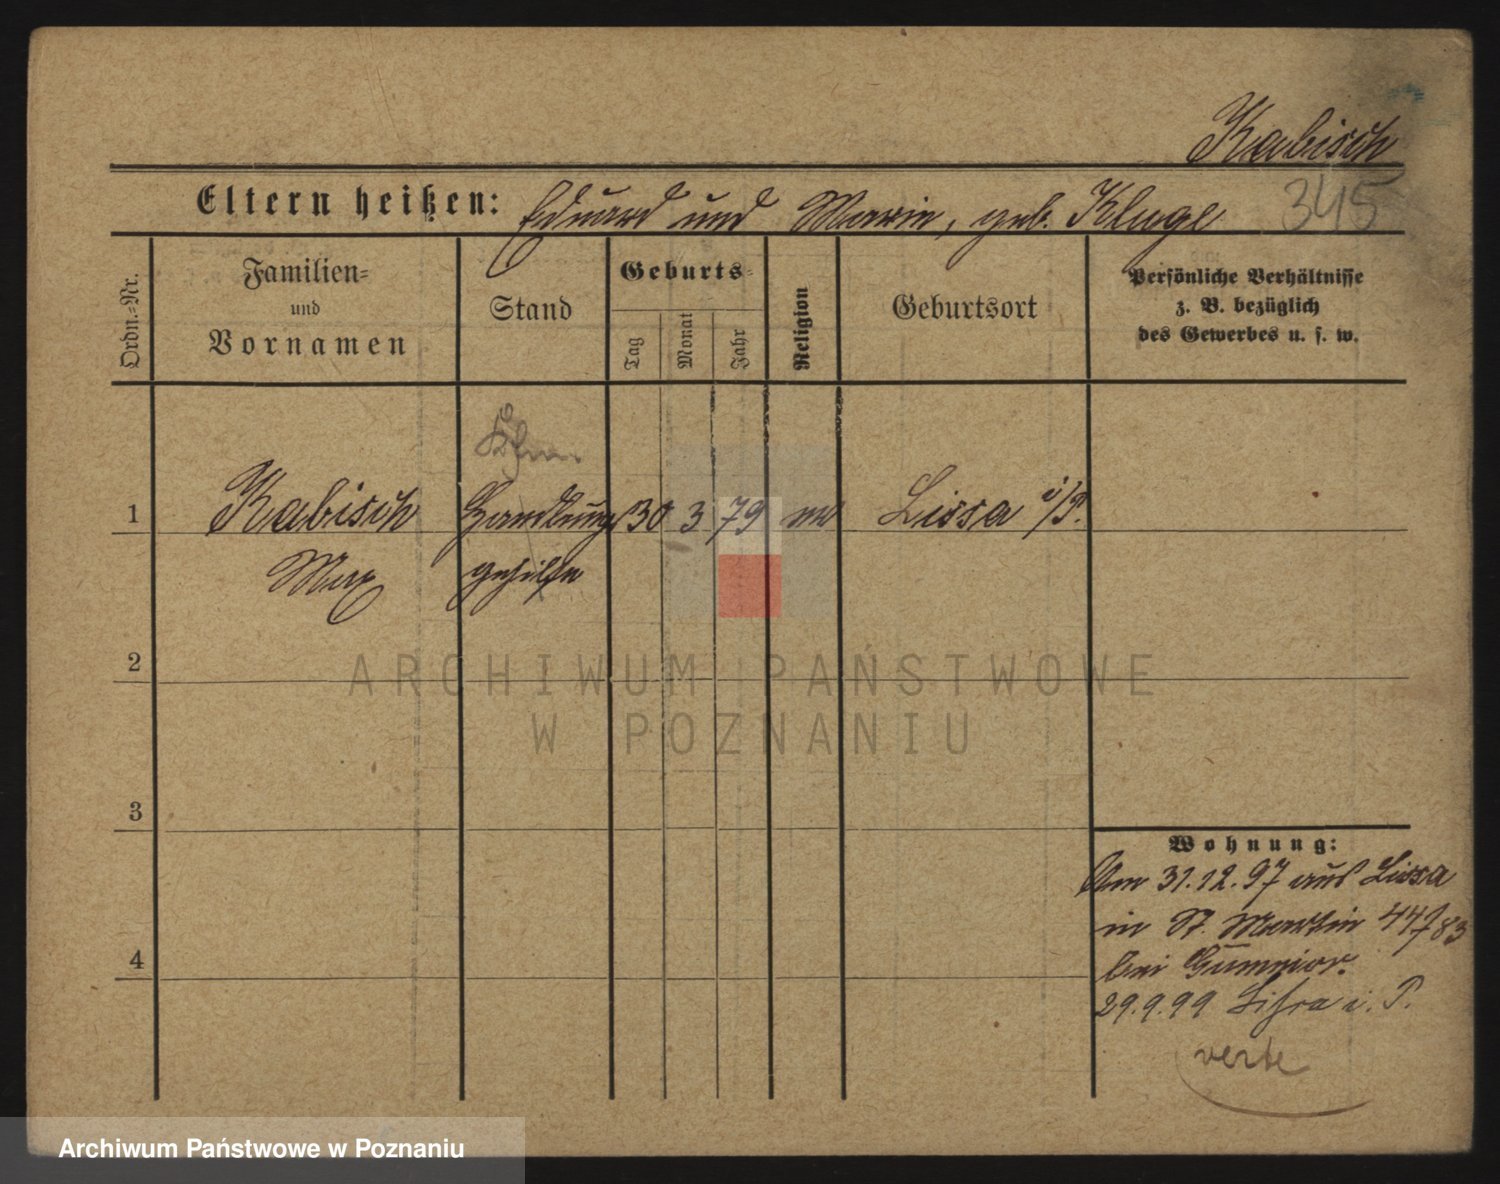 Kabisch
Eltern heißen: Eduard und Marie, geb. Kluge 345
Ordn.-Nr.
Familien-
und
Vornamen
Stand
Geburts-
Tag
Monat
Jahr
Religion
Geburtsort
Persönliche Verhältnisse
z. B. bezüglich
des Gewerbes u. s. w.
1 Kabisch Handlungs 30 3 79 ev Lissa i/P.
Max gehilfe
2
ARCHIWUM PAŃSTWOWE
W POZNANIU
3
Wohnung:
Am 31.12.97 aus Lissa
in St. Martin 44/83
bei
4
29.9.99 Lissa i. P.
verte
Archiwum Państwowe w Poznaniu